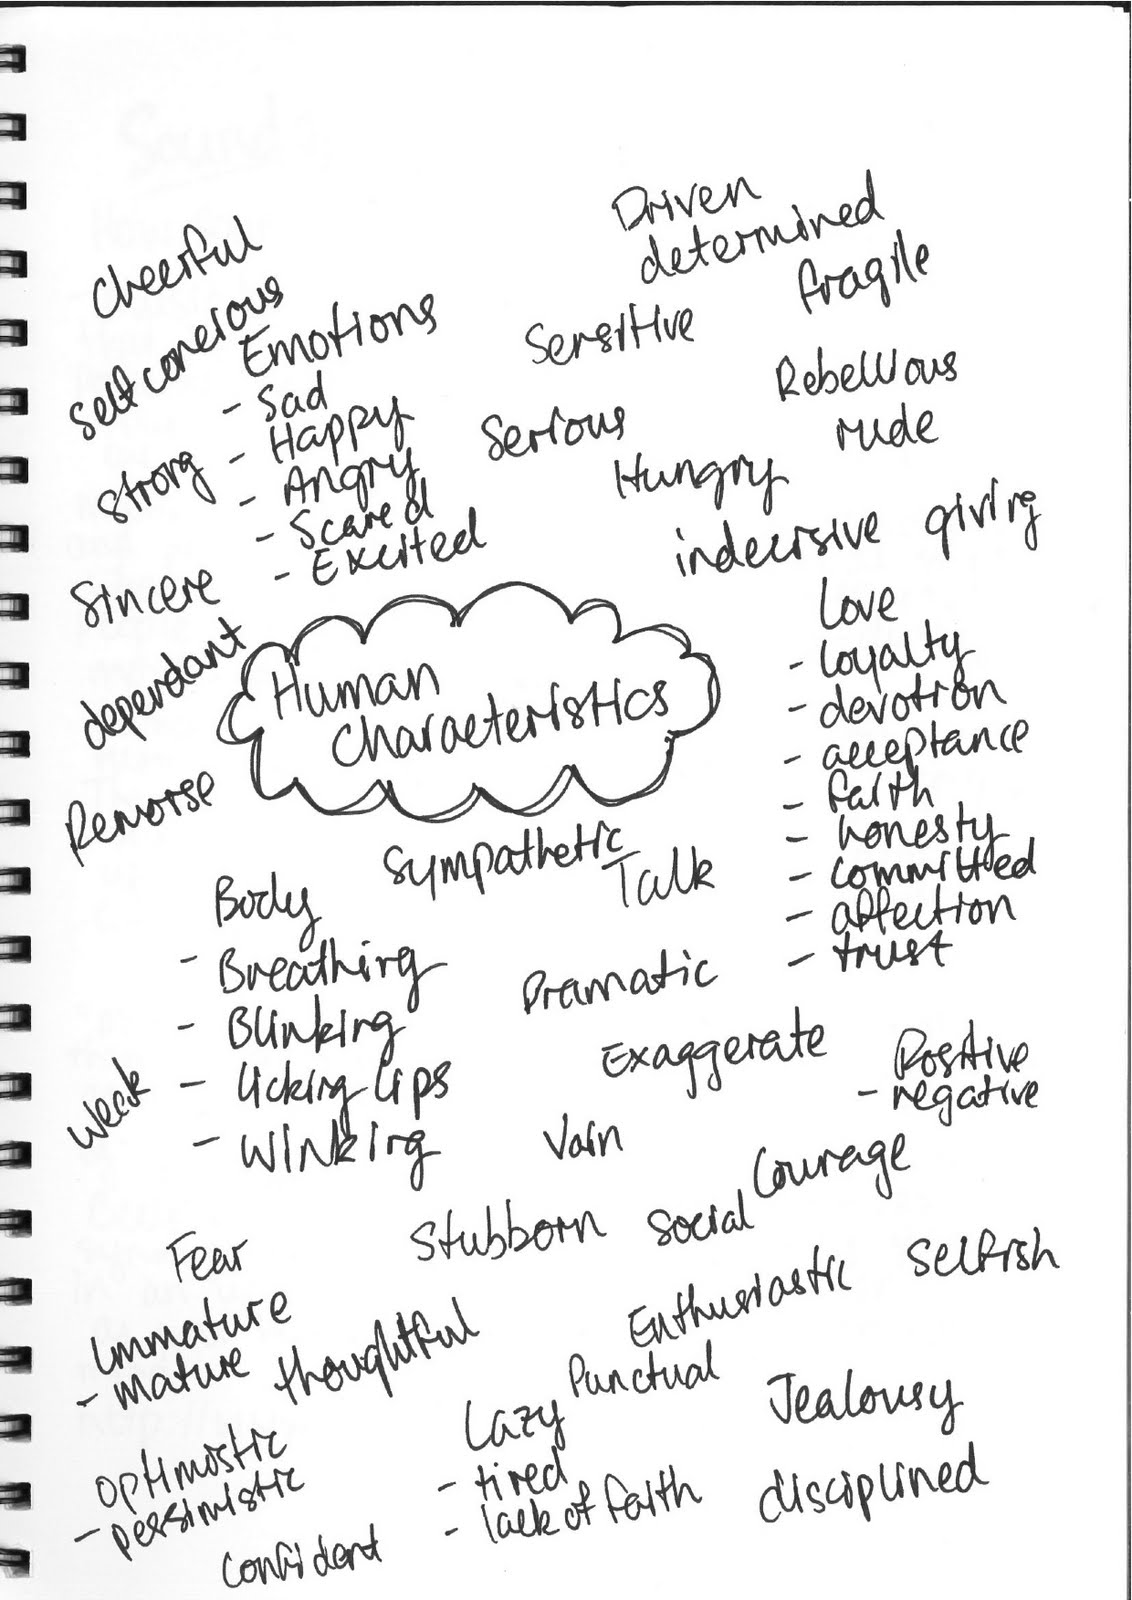 Driven
determined
fragile
Cheerful
Self concious
Emotions
- Sad
- Happy
- Angry
- Scared
- Excited
Sensitive
Serious
Rebellious
rude
Hungry
indecisive
giving
Strong
Sincere
dependant
Remorse
Human
Characteristics
Love
- loyalty
- devotion
- acceptance
- faith
- honesty
- committed
- affection
- trust
Sympathetic
Talk
Body
- Breathing
- Blinking
- licking lips
- winking
Dramatic
Exaggerate
Positive
- negative
weak
Vain
Courage
Stubborn
Social
Selfish
Fear
Immature
- mature
thoughtful
Enthusiastic
Punctual
Jealousy
Lazy
- tired
- lack of faith
disciplined
optimistic
- pessimistic
confident